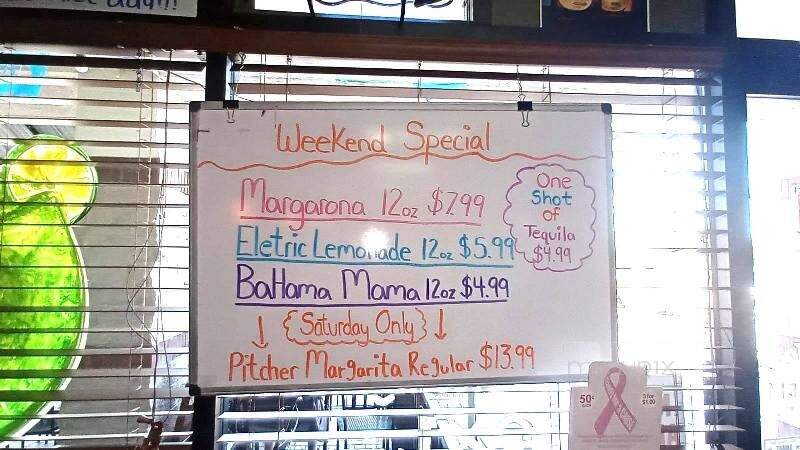 Weekend Special
Margarona 12oz $7.99
Eletric Lemonade 12oz $5.99
BaHama Mama 12oz $4.99
{Saturday Only}
Pitcher Margarita Regular $13.99
One
Shot
of
Tequila
$4.99
50¢
3 for
$1.00